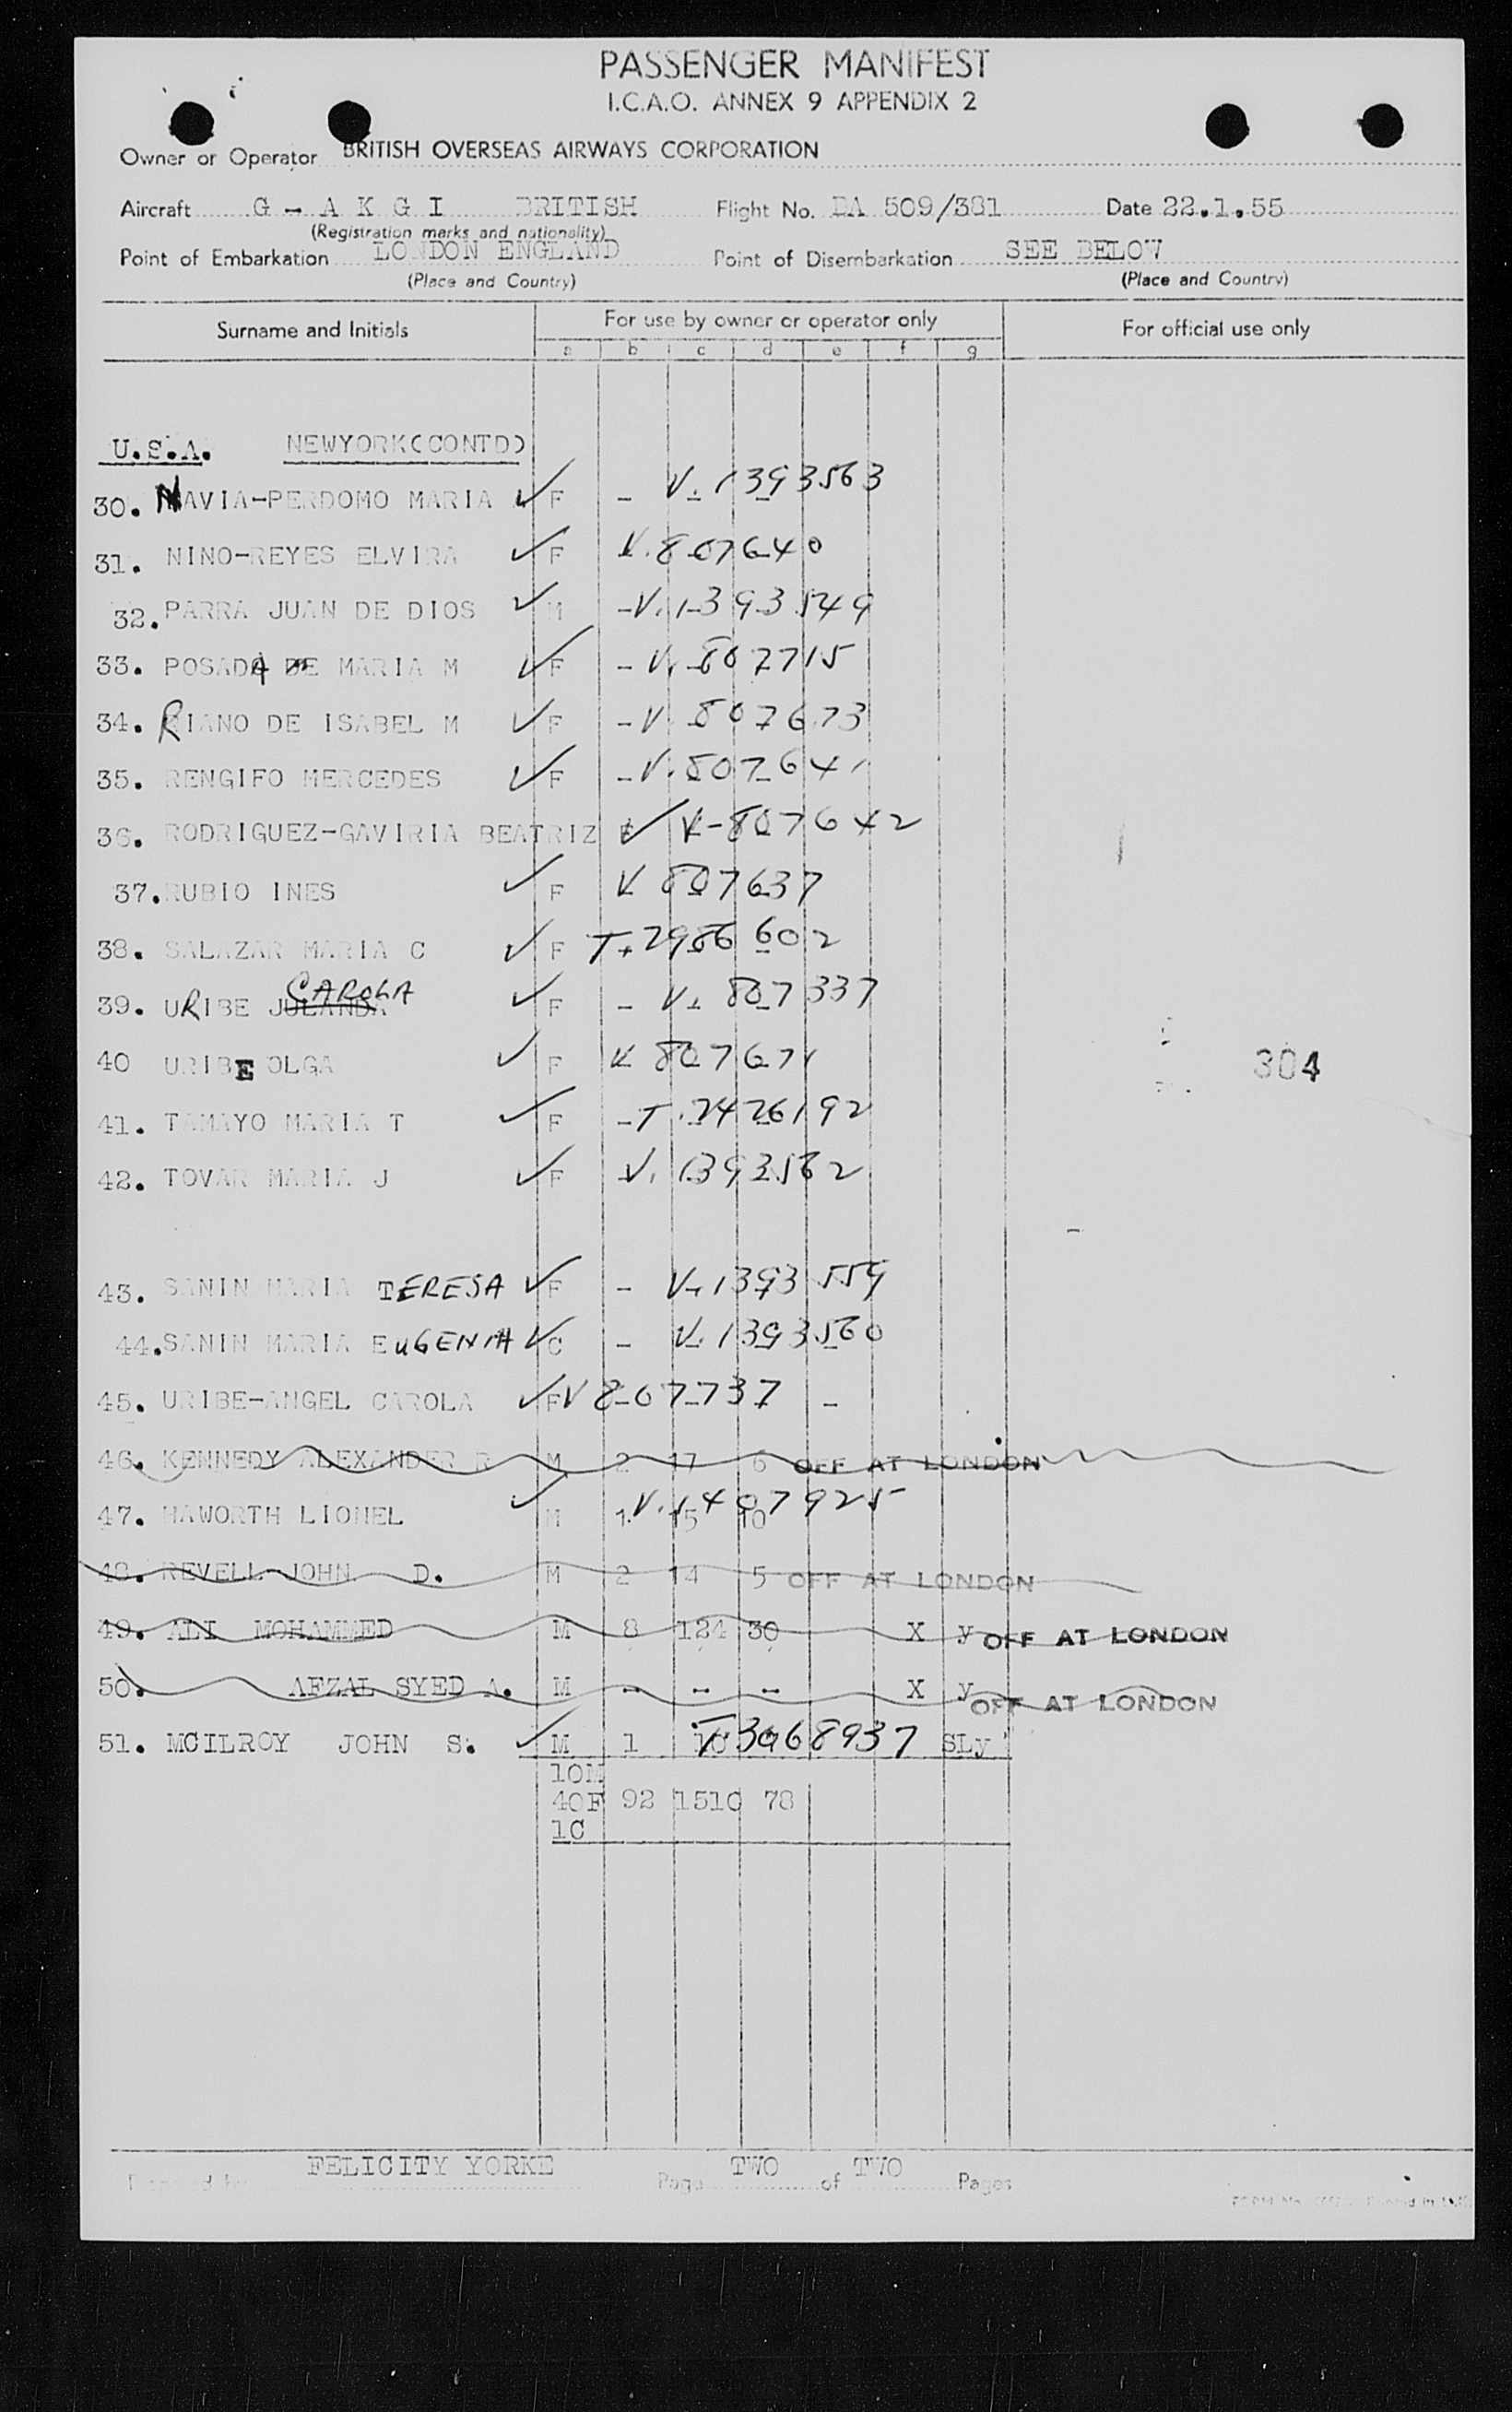 PASSENGER MANIFEST
I.C.A.O. ANNEX 9 APPENDIX 2
Owner or Operator BRITISH OVERSEAS AIRWAYS CORPORATION
Aircraft G - A K G I BRITISH Flight No. BA 509/381 Date 22.1.55
(Registration marks and nationality)
Point of Embarkation LONDON ENGLAND Point of Disembarkation SEE BELOW
(Place and Country) (Place and Country)
Surname and Initials For use by owner or operator only For official use only
a b c d e f g
U.S.A. NEWYORK(CONTD)
30. NAVIA-PERDOMO MARIA F - V. 1393563
31. NINO-REYES ELVIRA F V. 807640
32. PARRA JUAN DE DIOS M - V. 1393549
33. POSADA DE MARIA M F - V. 807715
34. RIANO DE ISABEL M F - V. 807673
35. RENGIFO MERCEDES F - V. 807641
36. RODRIGUEZ-GAVIRIA BEATRIZ F V-807642
37. RUBIO INES F V 807637
38. SALAZAR MARIA C F T. 2986602
39. URIBE JULANDA CAROLA F - V. 807337
40 URIBE OLGA F V 807671
304
41. TAMAYO MARIA T F - T. 2426192
42. TOVAR MARIA J F V. 1393562
43. SANIN MARIA TERESA F - V. 1393559
44. SANIN MARIA EUGENIA C - V. 1393560
45. URIBE-ANGEL CAROLA F V 807737 -
46. KENNEDY ALEXANDER R M 2 17 6 OFF AT LONDON
47. HAWORTH LIONEL M 1 15 10 V. 1407925
48. REVELL JOHN D. M 2 14 5 OFF AT LONDON
49. ALI MOHAMMED M 8 124 30 X y OFF AT LONDON
50. AFZAL SYED A. M - - - X y OFF AT LONDON
51. MCILROY JOHN S. M 1 T3068937 SLy
10M
40F 92 1510 78
1C
FELICITY YORKE Page TWO of TWO Pages